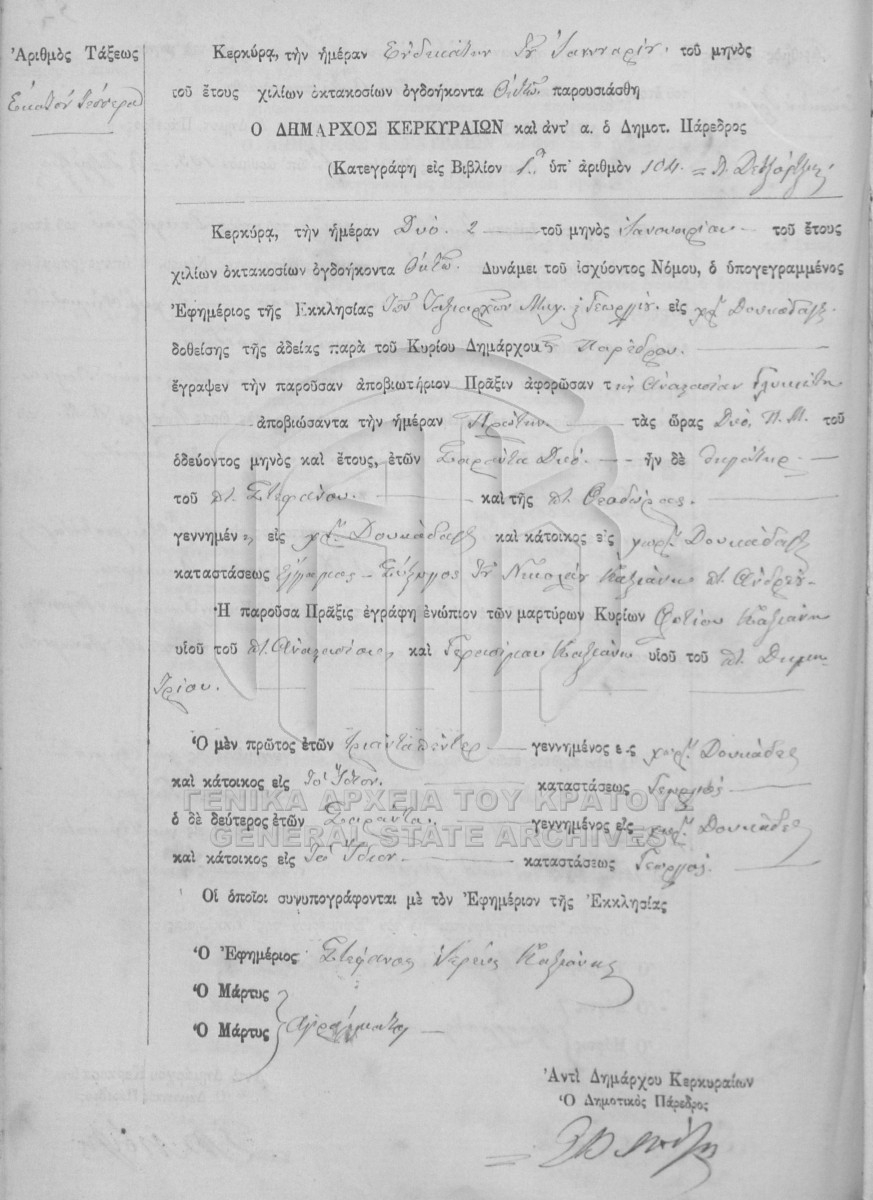 Ἀριθμὸς Τάξεως
Ἑκατὸν τέσσερα
Κερκύρα, τὴν ἡμέραν Ἑνδεκάτην τοῦ Ἰαννουαρίου τοῦ μηνὸς
τοῦ ἔτους χιλίων ὀκτακοσίων ὀγδοήκοντα Ὀκτὼ παρουσιάσθη
Ο ΔΗΜΑΡΧΟΣ ΚΕΡΚΥΡΑΙΩΝ καὶ ἀντ' α. ὁ Δημοτ. Πάρεδρος
(Κατεγράφη εἰς Βιβλίον ὑπ' ἀριθμὸν 104
Κερκύρα, τὴν ἡμέραν Δυὸ 2 τοῦ μηνὸς Ἰανουαρίου τοῦ ἔτους
χιλίων ὀκτακοσίων ὀγδοήκοντα Ὀκτὼ. Δυνάμει τοῦ ἰσχύοντος Νόμου, ὁ ὑπογεγραμμένος
Ἐφημέριος τῆς Ἐκκλησίας τῶν Ταξιαρχῶν Μιχ. & Γεωργίου εἰς χω. Δουκάδαις
δοθείσης τῆς ἀδείας παρὰ τοῦ Κυρίου Δημάρχου Παρέδρου.
ἔγραψεν τὴν παροῦσαν ἀποβιωτήριον Πρᾶξιν ἀφορῶσαν τὴν Ἀναστασίαν
ἀποβιώσαντα τὴν ἡμέραν Πρώτην τὰς ὥρας Δυὸ Π.Μ. τοῦ
ὁδεύοντος μηνὸς καὶ ἔτους, ἐτῶν Σαράντα Δυὸ. ἦν δὲ θυγάτηρ
τοῦ πτ. Στεφάνου. καὶ τῆς πτ. Θεοδώρας.
γεννημένη εἰς χω. Δουκάδαις καὶ κάτοικος εἰς χωρ. Δουκάδαις
καταστάσεως ἔγγαμος Σύζυγος τοῦ Νικολάου Κασιάνη πτ. Ἀνδρέου
Ἡ παροῦσα Πρᾶξις ἐγράφη ἐνώπιον τῶν μαρτύρων Κυρίων Φωτίου Κασιάνη
υἱοῦ τοῦ πτ. Ἀναστασίου καὶ Γερασίμου Κασιάνη υἱοῦ τοῦ πτ. Δημη-
τρίου.
Ὁ μὲν πρῶτος ἐτῶν τριάντα πέντε γεννημένος εἰς χωρ. Δουκάδες
καὶ κάτοικος εἰς τὸ ἴδιον. καταστάσεως Γεωργὸς
ὁ δὲ δεύτερος ἐτῶν Σαράντα. γεννημένος εἰς χωρ. Δουκάδες
καὶ κάτοικος εἰς τὸ ἴδιον καταστάσεως Γεωργὸς.
ΓΕΝΙΚΑ ΑΡΧΕΙΑ ΤΟΥ ΚΡΑΤΟΥΣ
GENERAL STATE ARCHIVES
Οἱ ὁποῖοι συνυπογράφονται μὲ τὸν Ἐφημέριον τῆς Ἐκκλησίας
Ὁ Ἐφημέριος Στέφανος Ἱερεὺς Κασιάνης
Ὁ Μάρτυς
Ὁ Μάρτυς ἀγράμματοι
Ἀντὶ Δημάρχου Κερκυραίων
Ὁ Δημοτικὸς Πάρεδρος